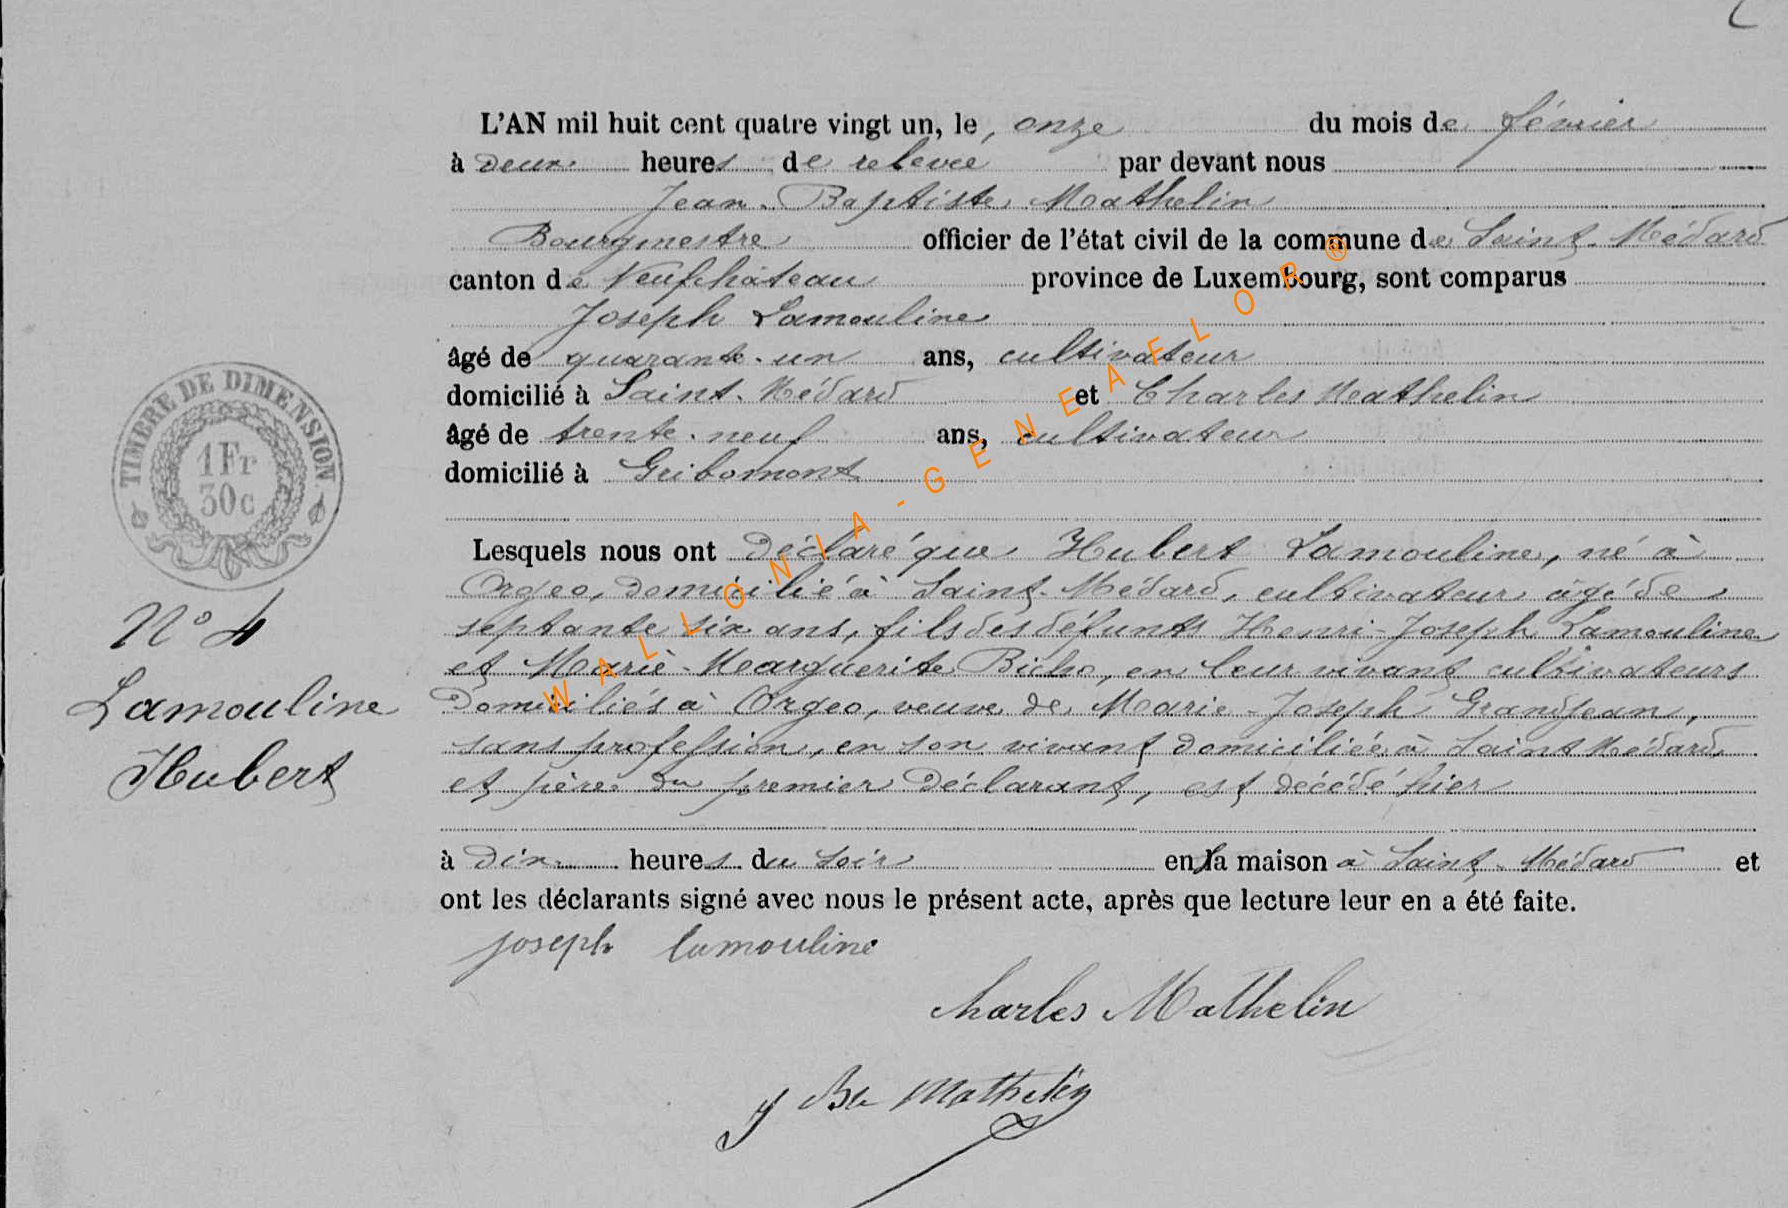 L'AN mil huit cent quatre vingt un, le onze du mois de février
à deux heures de relevée par devant nous
Jean-Baptiste Mathelin
Bourgmestre officier de l'état civil de la commune de Saint-Médard
canton de Neufchâteau province de Luxembourg, sont comparus
Joseph Lamouline
âgé de quarante-un ans, cultivateur
domicilié à Saint-Médard et Charles Mathelin
âgé de trente-neuf ans, cultivateur
domicilié à Gribomont
Lesquels nous ont déclaré que Hubert Lamouline, né à
Orgeo, domicilié à Saint-Médard, cultivateur âgé de
septante six ans, fils des défunts Henri-Joseph Lamouline
et Marie-Marguerite Bicho, en leur vivant cultivateurs
domiciliés à Orgeo, veuve de Marie-Joseph Grandjean,
sans profession, en son vivant domiciliée à Saint Médard,
et père du premier déclarant, est décédé hier
à dix heures du soir en sa maison à Saint-Médard et
ont les déclarants signé avec nous le présent acte, après que lecture leur en a été faite.
joseph lamouline
Charles Mathelin
J Bte Mathelin
TIMBRE DE DIMENSION
1 Fr
30 c
N° 4
Lamouline
Hubert
WALLONIA-GENEAFLOR®